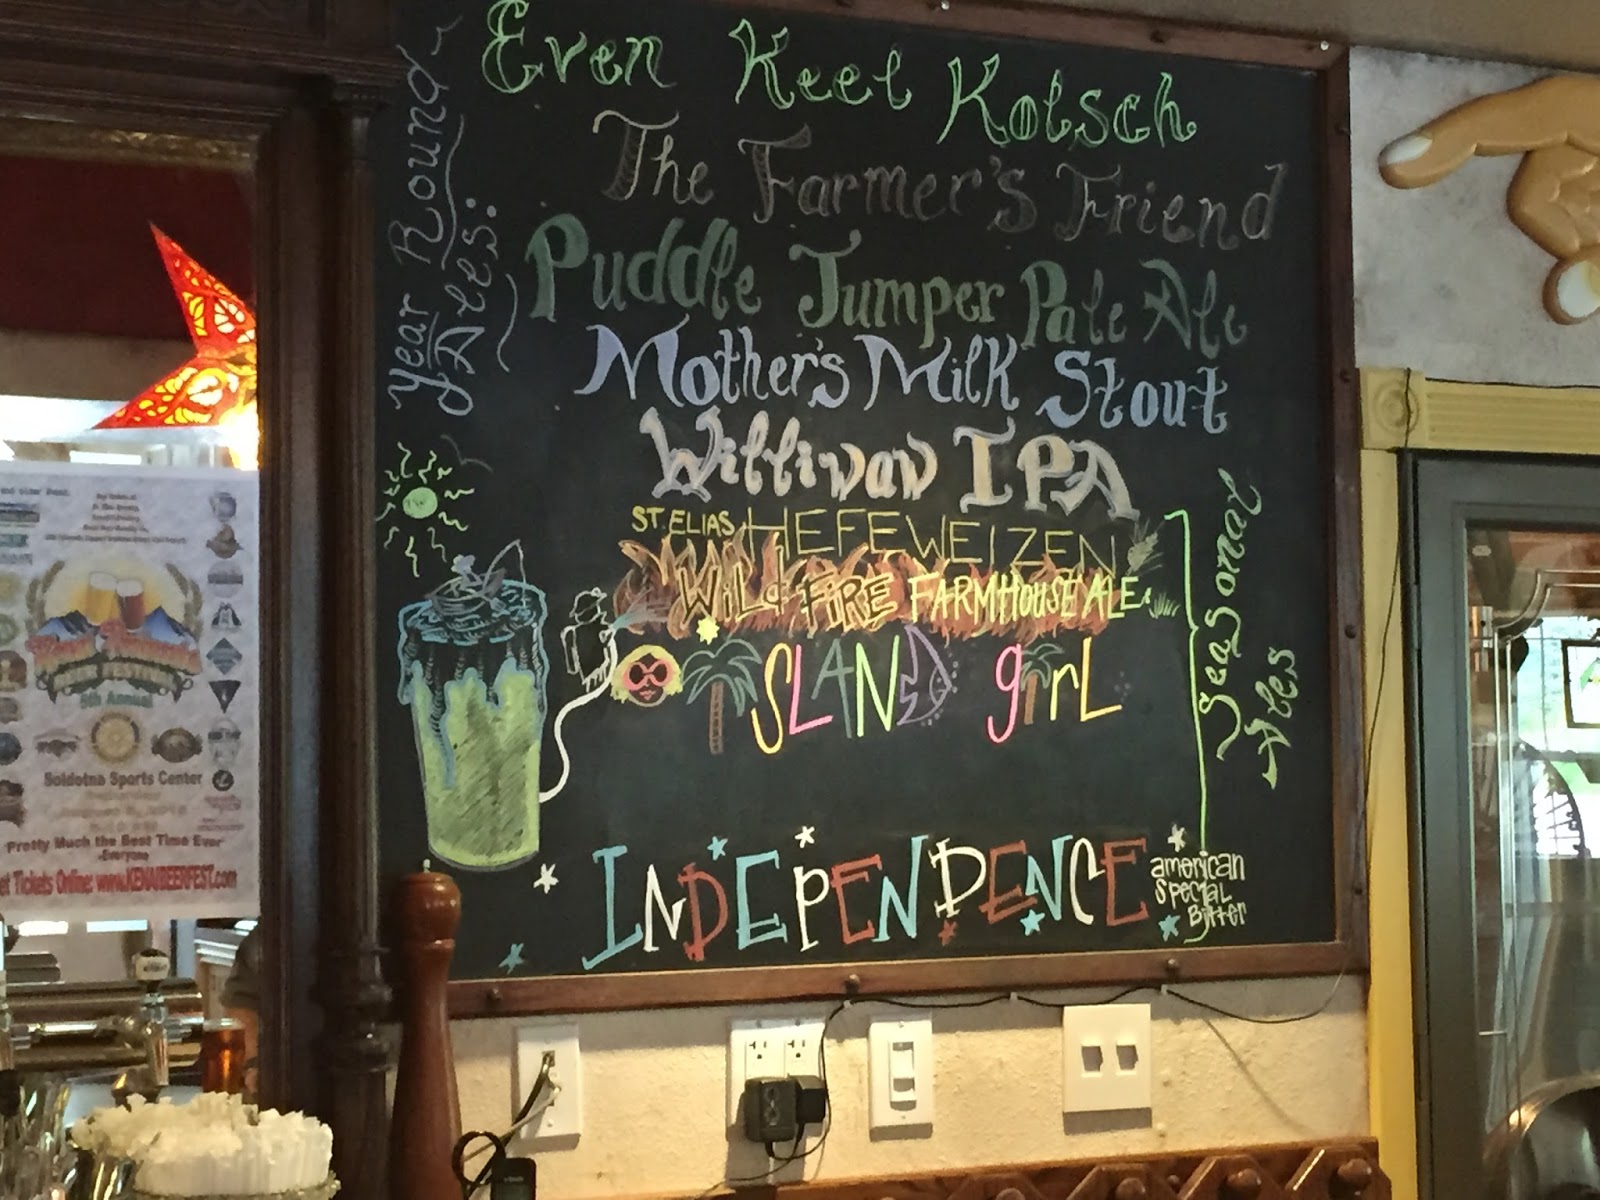 Year Round
Ales:
Even Keel Kolsch
The Farmer's Friend
Puddle Jumper Pale Ale
Mother's Milk Stout
Williwaw IPA
ST. ELIAS HEFEWEIZEN
WILD FIRE FARMHOUSE ALE
ISLAND girL
Seasonal
Ales
INDEPENDENCE
american
special
Bitter
5th Annual
Soldotna Sports Center
Pretty Much the Best Time Ever
-Everyone
et Tickets Online: www.KENAIBEERFEST.com